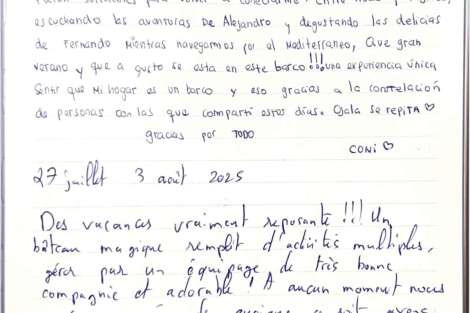 para volver a conectarme. Entre
escuchando las aventuras De Alejandro y degustando las delicias
de Fernando mientras navegamos por el Mediterraneo, Que gran
verano y que a gusto se esta en este barco!!! una experiencia única
Sentir que Mi hogar es un barco y eso gracias a la constelación
de personas con las que comparti estos días. Ojala se repita ♡
gracias por TODO
CONI ♡
27 juillet 3 août 2025
Des vacances vraiment reposante !!! Un
bateau magique remplit d'activités multiples,
gérer par un équipage de très bonne
compagnie et adorable ! A aucun moment nous